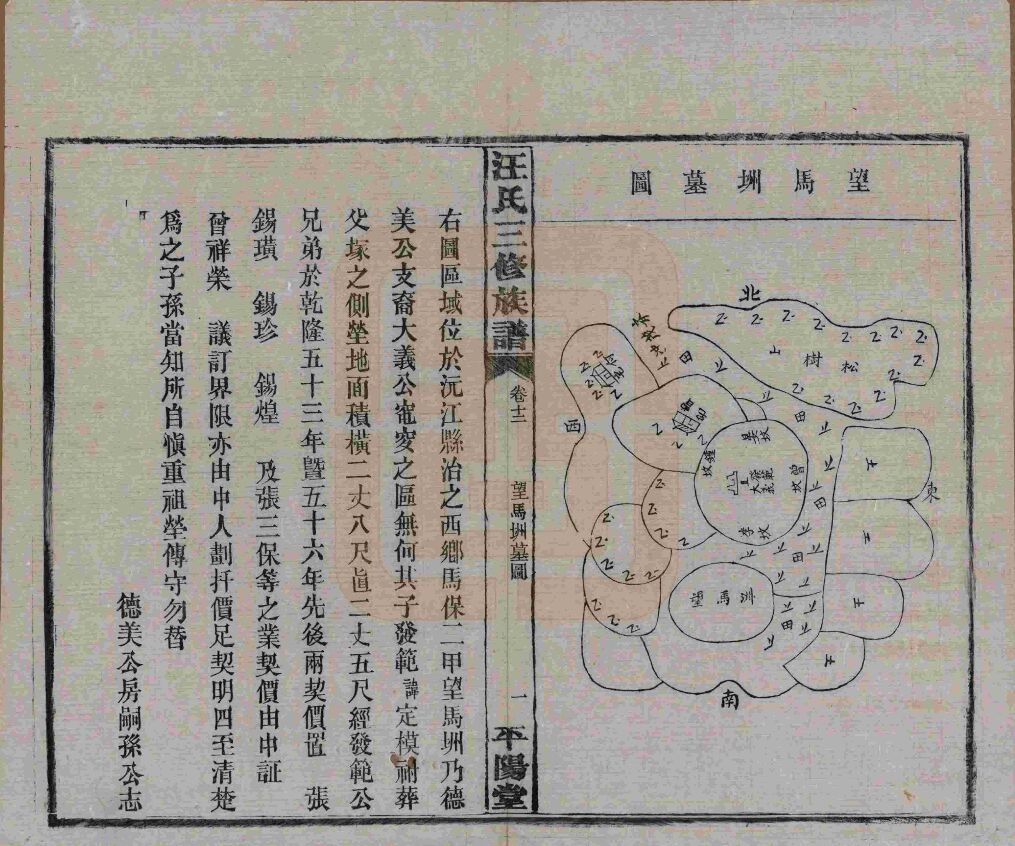 望馬圳墓圖
北
山
樹
松
西
東
吳坟
曾坟
鐘坟
李坟
田
田
田
田
望馬洲
南
汪氏三修族譜
卷十二
望馬圳墓圖
一
平陽堂
右圖區域位於沅江縣治之西鄉馬保二甲望馬圳乃德
美公支裔大義公窀穸之區無何其子發範諱定模祔葬
父塚之側塋地面積橫二丈八尺直二丈五尺經發範公
兄弟於乾隆五十三年暨五十六年先後兩契價置 張
錫璜 錫珍 錫煌 及張三保等之業契價由中証
曾祥榮 議訂界限亦由中人劃扦價足契明四至清楚
為之子孫當知所自慎重祖塋傳守勿替
德美公房嗣孫公志